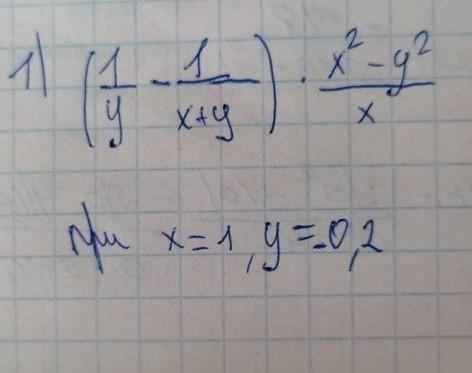 1) (1/y - 1/(x+y)) · (x² - y²)/x
при x = 1, y = -0,2